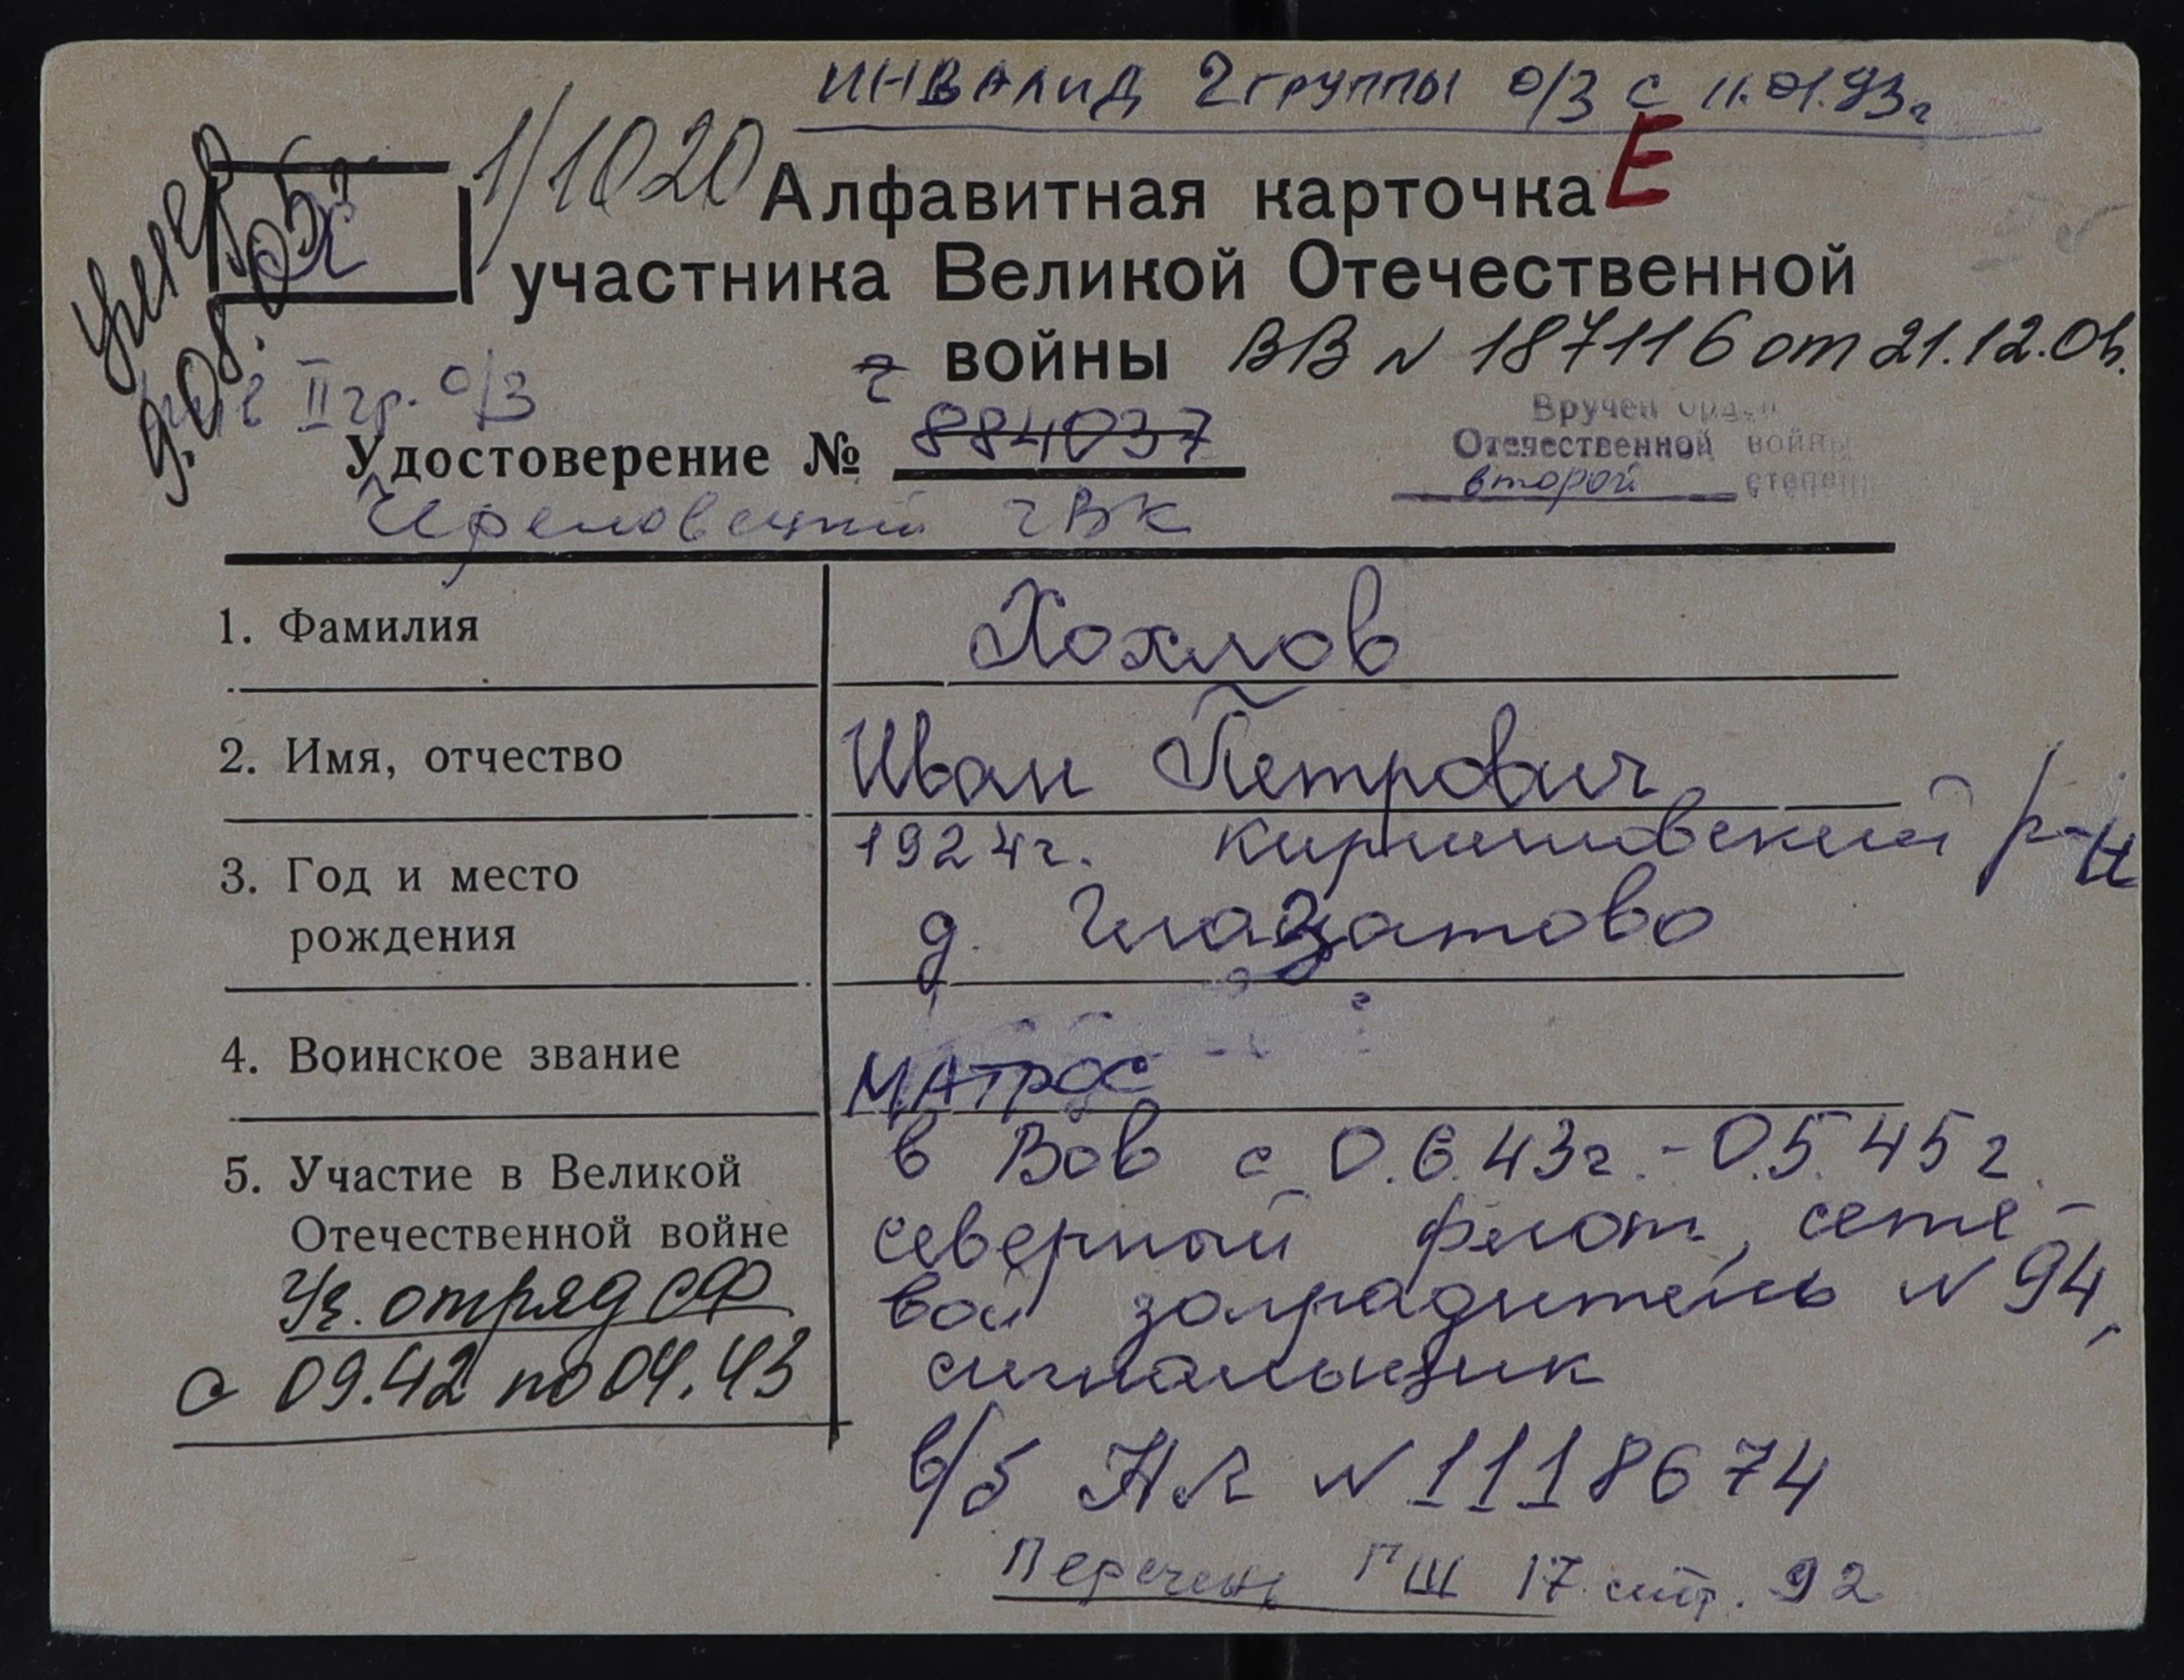 ИНВАЛИД 2 группы о/з с 11.01.93г
1/1020
Алфавитная карточка Е
участника Великой Отечественной
войны ВВ N 187116 от 21.12.0
Умер
9.08.05г
Х
II гр. о/з
г
Удостоверение № 884037
Вручен орден
Отечественной войны
второй степени
Череповецкий ГВК
1. Фамилия
Хохлов
2. Имя, отчество
Иван Петрович
3. Год и место
рождения
1924г. Кирилловский р-н
д. Глазатово
4. Воинское звание
МАТРОС
5. Участие в Великой
Отечественной войне
Уч. отряд СФ
с 09.42 по 04.43
в Вов с 0.6.43г. - 05.45г.
северный флот, сете-
вой заградитель N 94,
сигнальщик
в/б НЛ N 1118674
Перечень ГШ 17 стр. 92